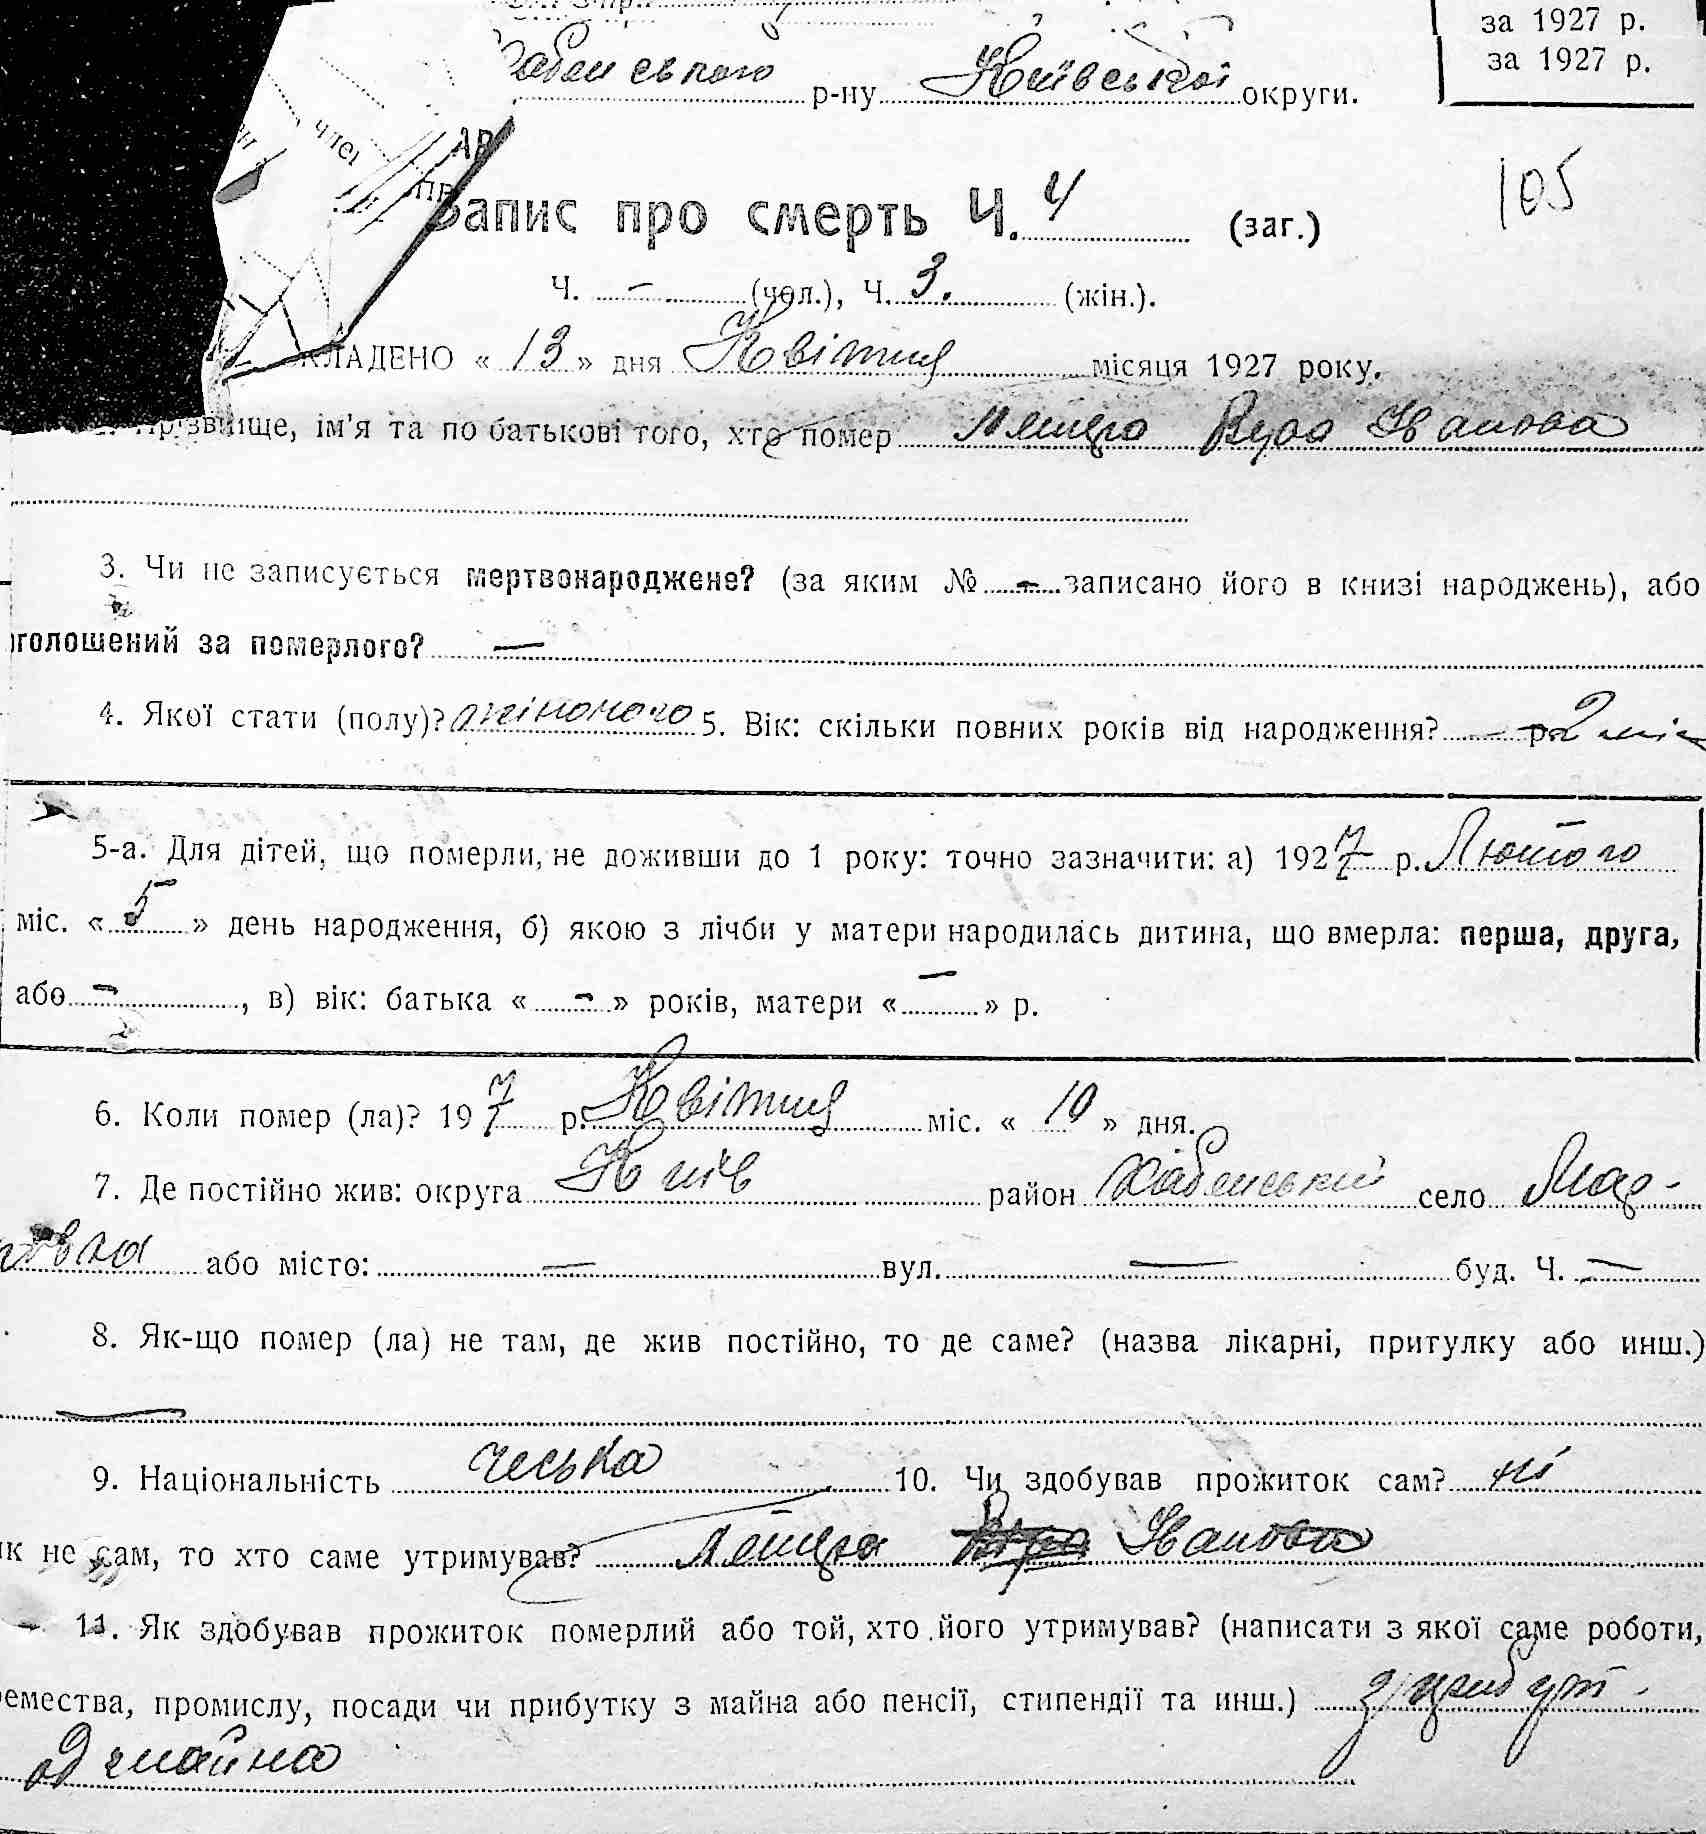 за 1927 р.
за 1927 р.
р-ну Київської округи.
член
Запис про смерть Ч. 4 (заг.)
105
Ч. - (чол.), Ч. 3. (жін.).
КЛАДЕНО « 13 » дня Квітня місяця 1927 року.
Прізвище, ім'я та по батькові того, хто помер Іванова
3. Чи не записується мертвонароджене? (за яким № - записано його в книзі народжень), або
оголошений за померлого? —
4. Якої стати (полу)? жіночого 5. Вік: скільки повних років від народження? - р. 2 міс
5-а. Для дітей, що померли, не доживши до 1 року: точно зазначити: а) 1927 р. Лютого
міс. « 5 » день народження, б) якою з лічби у матери народилась дитина, що вмерла: перша, друга,
або - , в) вік: батька « - » років, матери « - » р.
6. Коли помер (ла)? 19 7 р. Квітня міс. « 10 » дня.
7. Де постійно жив: округа Київ район Хабенський село
або місто: — вул. — буд. Ч. —
8. Як-що помер (ла) не там, де жив постійно, то де саме? (назва лікарні, притулку або инш.)
—
9. Національність чеська 10. Чи здобував прожиток сам? ні
як не сам, то хто саме утримував? Іванова
11. Як здобував прожиток померлий або той, хто його утримував? (написати з якої саме роботи,
ремества, промислу, посади чи прибутку з майна або пенсії, стипендії та инш.) з прибут-
од майна